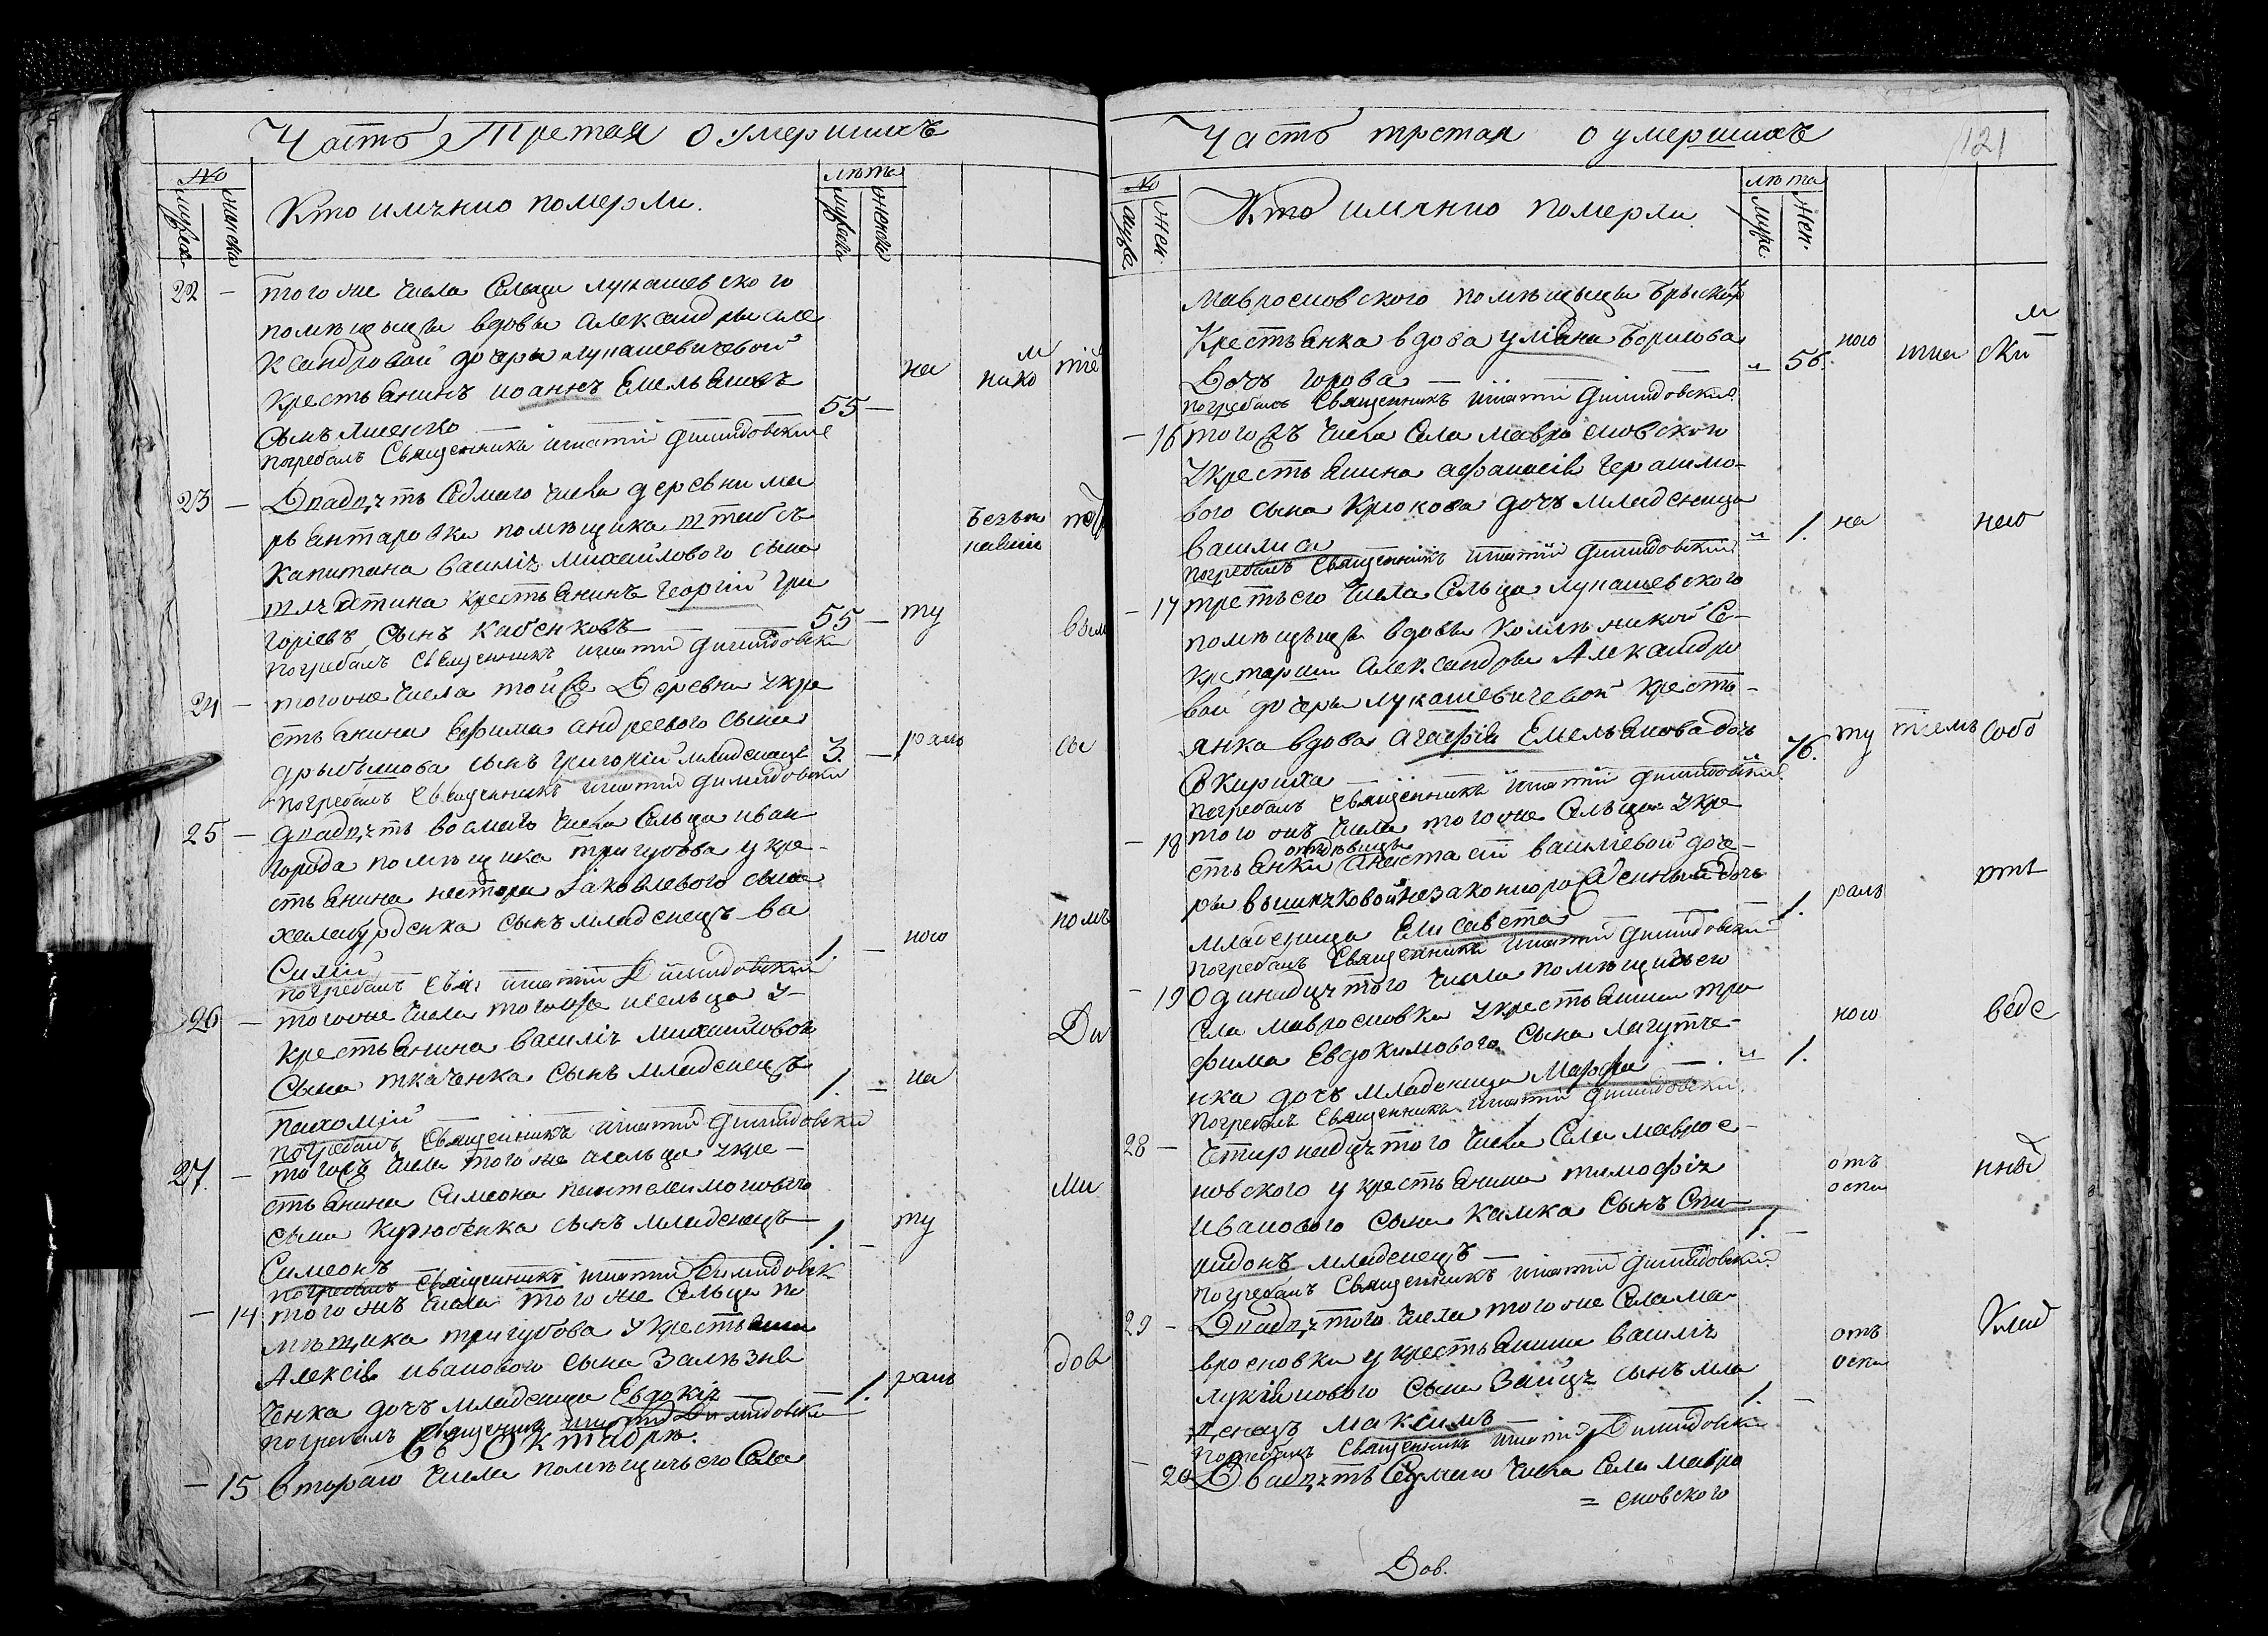 Часть Третая О умершихъ
№
мужеска
женска
Кто имянно померли.
лѣта
мужеска
женска
22 — того же числа Сельца лукашевского
помѣщицы вдовы александры але
ксандровой дочери лукашевичевой
крестьянинъ иоаннъ Емельяновъ
сынъ 55 —
погребалъ Священникъ игнатій Димидовскій
на
тіе
23 — Двадцять Седмаго числа деревни ма
рьянтаровки помѣщика штабсъ
капитана василія михайлового сына
крестьянинъ георгій гри
горіевъ сынъ кабенковъ 55 —
погребалъ Священникъ игнатій димидовскі
ту
24 — того же числа той же Деревни у кре
стьянина Ефима андреевого сына
сынъ григорій младенецъ 3. —
погребалъ Священникъ игнатій димидовскі
раль
25 — двадцять восмаго числа Сельца иван
города помѣщика тригубова у кре-
стьянина нестора Іаковлевого сына
сынъ младенецъ ва
силій 1. —
погребалъ Свящ игнатій Димидовскій
ного
26 — того же числа того же исельца у-
крестьянина василія михайлового
сына ткаченка сынъ младенецъ
пахомій 1. —
погребалъ Священникъ игнатій димидовскій
на
Ди
27. — тогожъ числа того же исельца у кре-
стьянина Симеона пантелимонового
сына сынъ младенецъ
Симеонъ 1. —
погребалъ Священникъ игнатій Димидовск
ту
ми
— 14 того жъ числа того же сельца по
мѣщика тригубова у крестьянина
Алексія иванового сына Залѣзня
ченка дочъ младеница Евдокія 1.
погребалъ Священникъ игнатій Димидовскі
раль
дов
Въ Октябрѣ.
— 15 Втораго числа помѣщичьего Села
Часть третая о умершихъ
121
№
муже.
Жен.
Кто имянно померли.
лѣта
Муже.
Жен.
мавроеновского помѣщицы
Крестьянка вдова уліана Борисова
Дочъ 56.
погребалъ Священникъ игнатій Димидовскій
ного
ски
— 16 тогожъ числа Села мавроеновского
У крестьянина афанасія Герасимо-
вого сына Крюкова дочъ младеница
василиса 1.
погребалъ Священникъ игнатій Димидовскій
на
— 17 третьего числа Сельца лукашевского
помѣщицы вдовы Се-
кретарши александры Александро
вой дочери лукашевичевой кресть-
янка вдова агафія Емельянова дочъ
76.
погребалъ Священникъ игнатій димидовскій
ту
собо
— 18 того жъ числа того же Сельца у кре
стьянки отъ дѣвицы анастасіи василіевой доче-
ри незаконнорожденный дочъ
младеница Елисавета 1.
погребалъ Священникъ игнатій Димидовскій
раль
— 19 Одинадцятого числа помѣщичьего
Села мавроеновки у крестьянина тро
фима Евдокимового сына лагутче-
нка дочъ младеница Марфа — 1.
погребалъ Священникъ игнатій Димидовскій
ного
веде
28 — Четирнадцятого числа Села мавроe-
новского у крестьянина тимофія
иванового сына Камка сынъ Спи
ридонъ младенецъ 1. —
погребалъ Священникъ игнатій димидовскій
отъ
оспы
ный
29 — Двадцятого числа того же Села ма
вроеновки у крестьянина василія
лукіянового сына Зайця сынъ мла
денецъ максимъ 1. —
погребалъ Священникъ игнатій Димидовскі
отъ
оспы
— 20 Двадцять Седмаго числа Села мавро
= еновского
Дов.